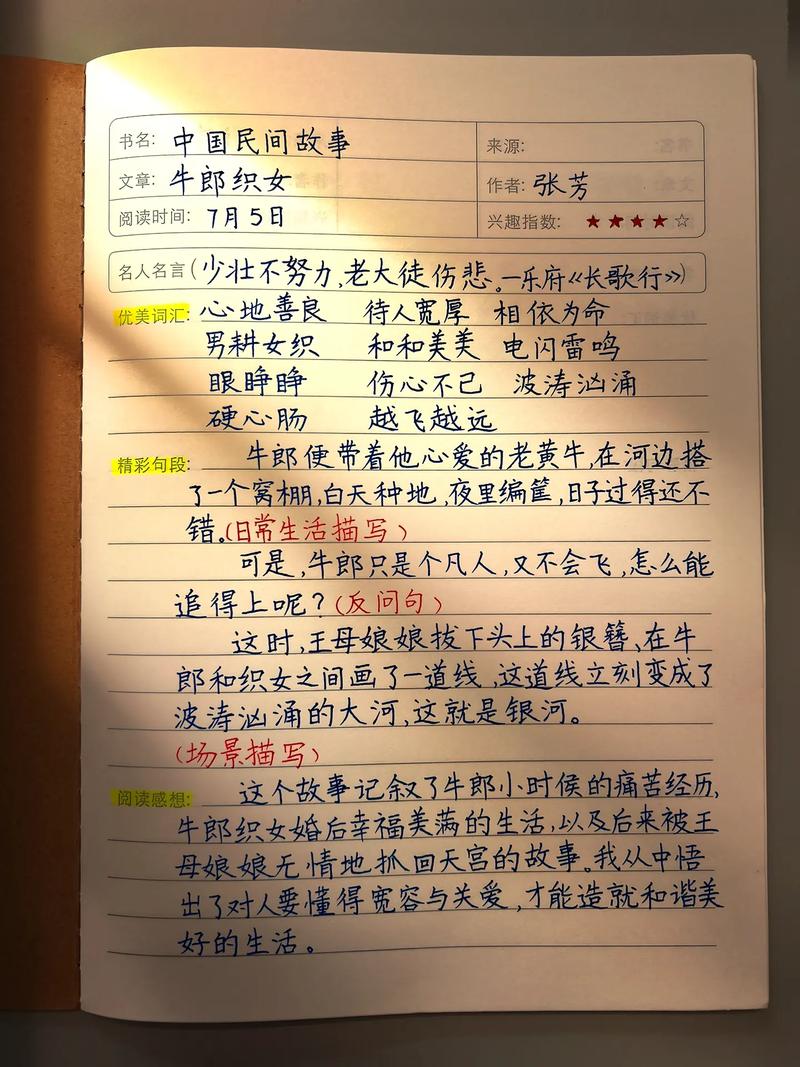 书名: 中国民间故事 来源:
文章: 牛郎织女 作者: 张芳
阅读时间: 7月5日 兴趣指数: ★★★★☆
名人名言(少壮不努力,老大徒伤悲。—乐府《长歌行》)
优美词汇: 心地善良 待人宽厚 相依为命
男耕女织 和和美美 电闪雷鸣
眼睁睁 伤心不已 波涛汹涌
硬心肠 越飞越远
精彩句段: 牛郎便带着他心爱的老黄牛,在河边搭
了一个窝棚,白天种地,夜里编筐,日子过得还不
错。(日常生活描写)
可是,牛郎只是个凡人,又不会飞,怎么能
追得上呢?(反问句)
这时,王母娘娘拔下头上的银簪、在牛
郎和织女之间画了一道线,这道线立刻变成了
波涛汹涌的大河,这就是银河。
(场景描写)
阅读感想: 这个故事记叙了牛郎小时候的痛苦经历,
牛郎织女婚后幸福美满的生活,以及后来被王
母娘娘无情地抓回天宫的故事。我从中悟
出了对人要懂得宽容与关爱,才能造就和谐美
好的生活。